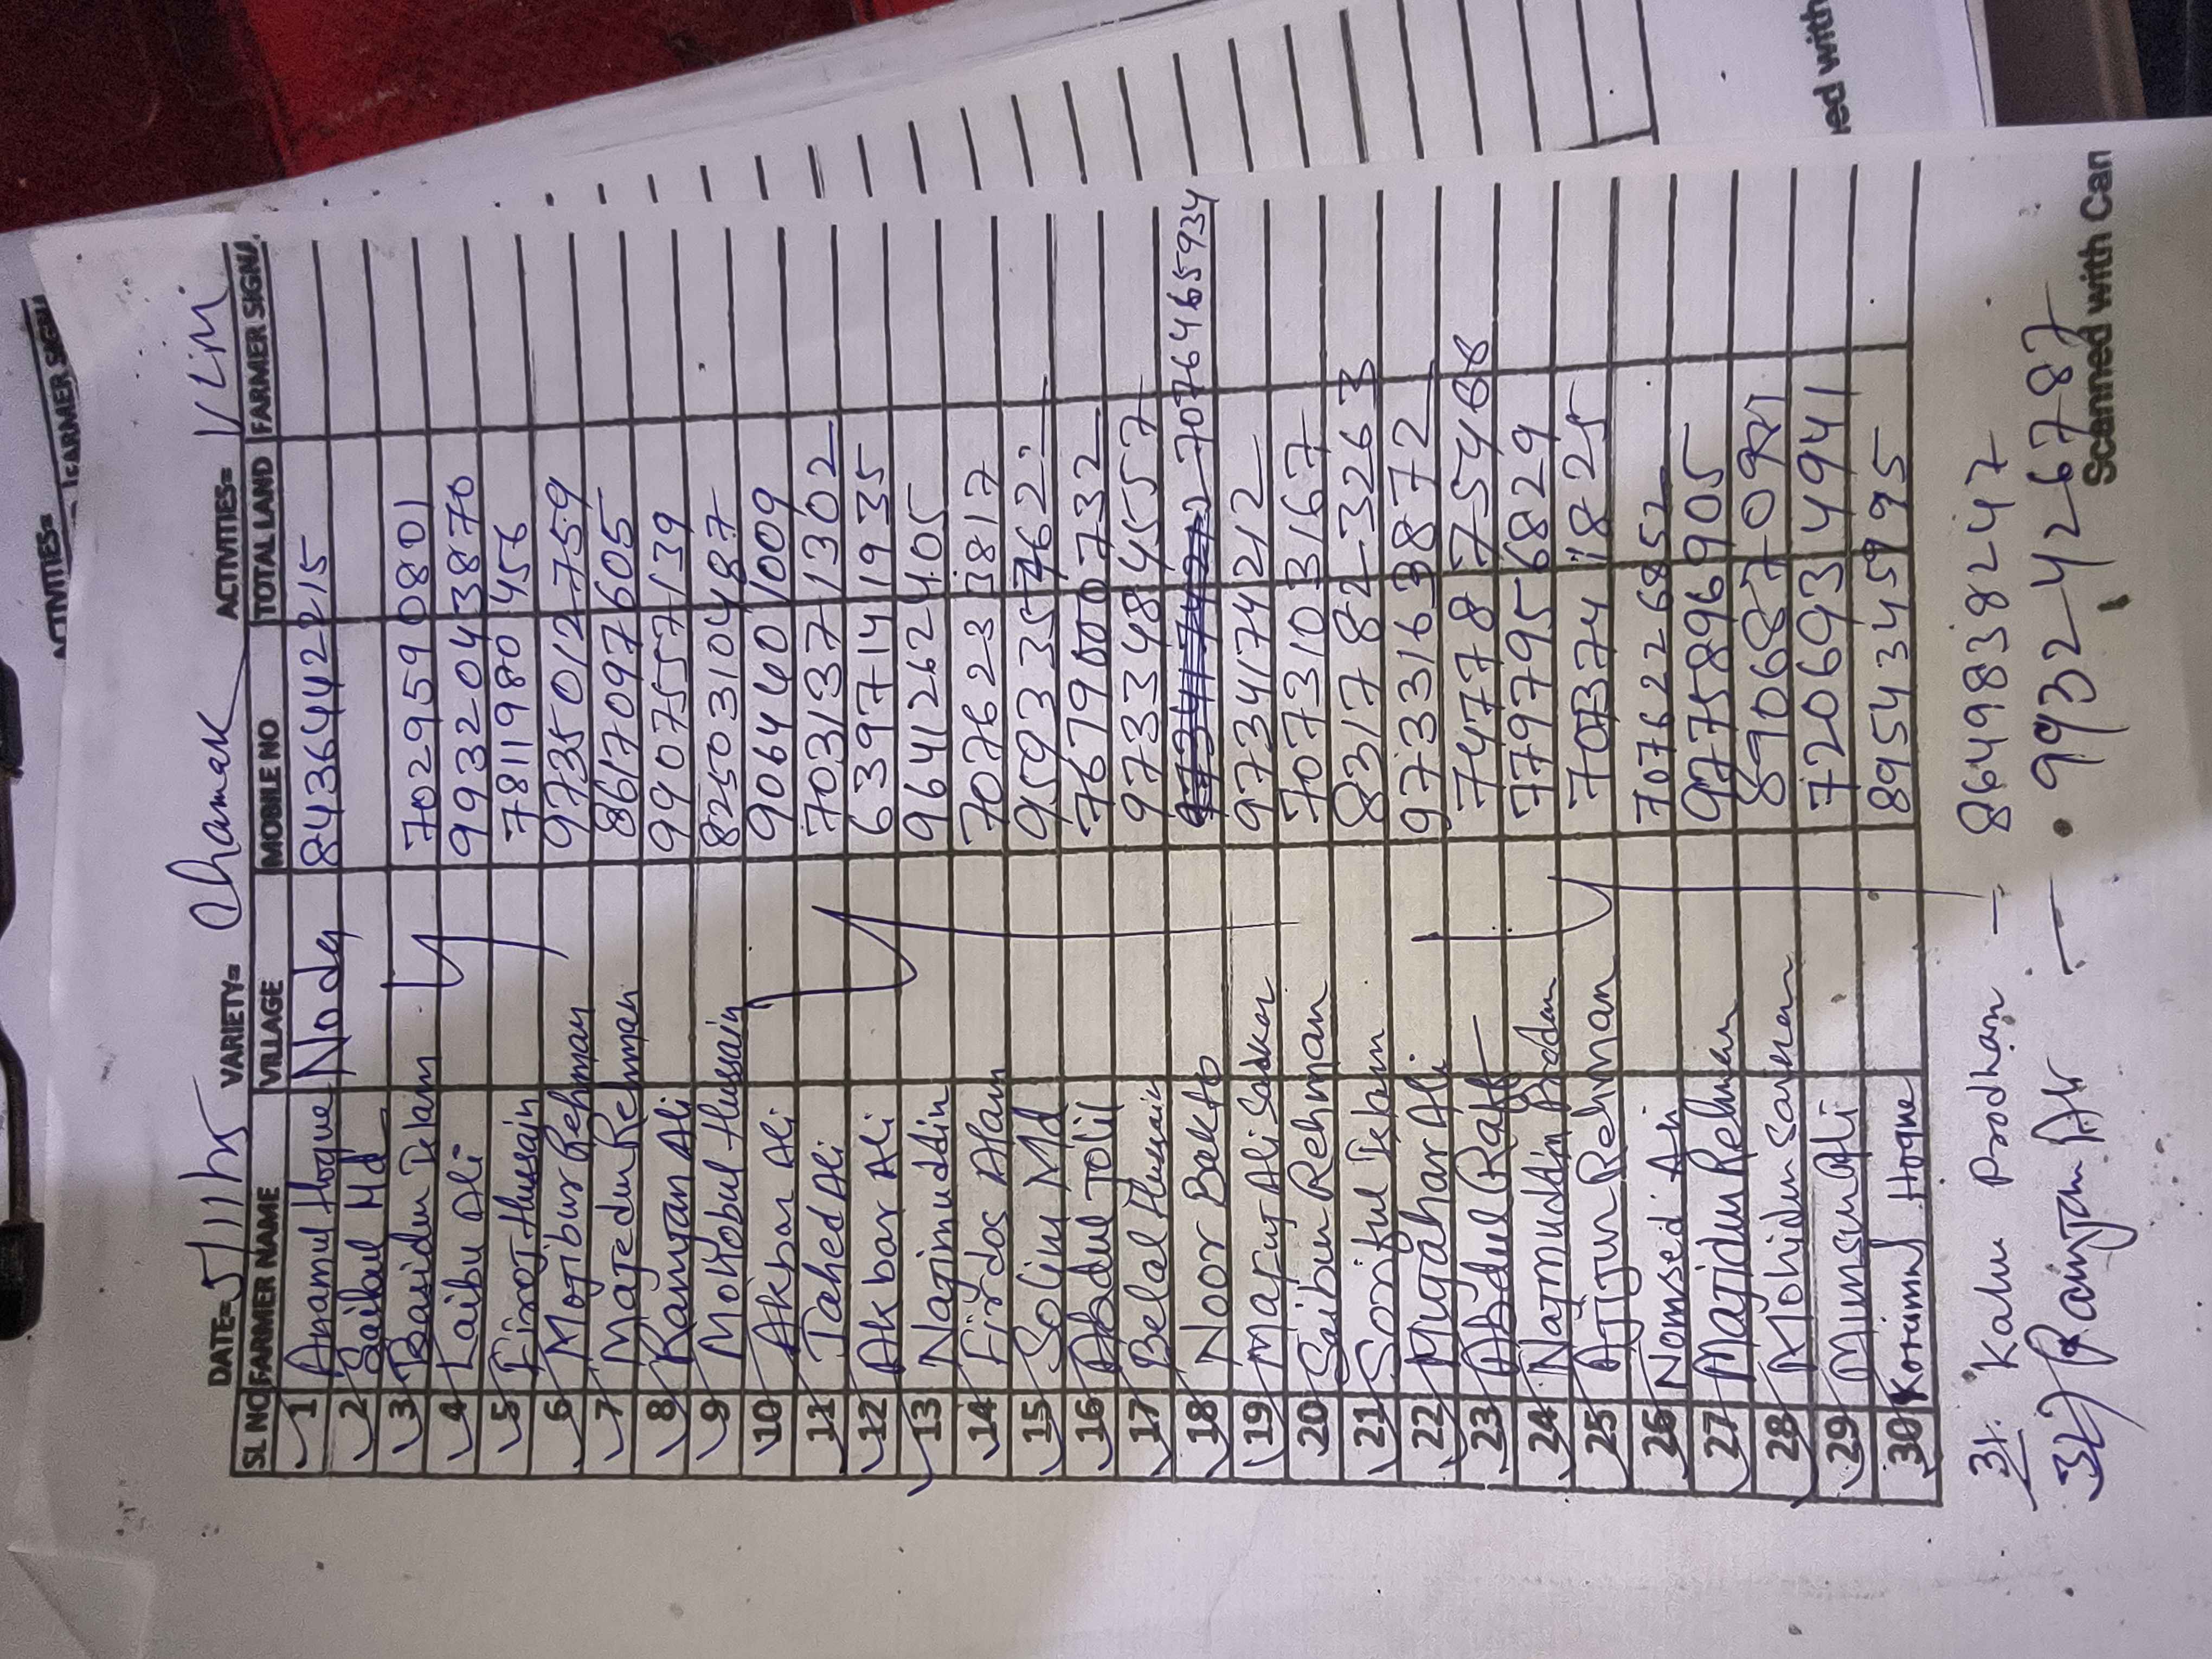 DATE= 5/11/25 VARIETY= Chamak ACTIVITIES= V Lin
SL NO FARMER NAME VILLAGE MOBILE NO TOTAL LAND FARMER SIGN
1 Anamul Hoque Noda 8436442215
2 Saibul Md
3 Basidur Islam 7029590801
4 Laibu Ali 9932043870
5 Firoj Hussain 7811980456
6 Mojibur Rehman 9735012759
7 Majedur Rehman 8617097605
8 Ramjan Ali 9907557139
9 Mohobul Hussain 8250310487
10 Akbar Ali 9064601009
11 Tahed Ali 7031371302
12 Akbar Ali 6397141935
13 Najimuddin 9641262405
14 Firdos Alam 7076233817
15 Soljur Md
16 Abdul Tolil 7679000732
17 Belal Hussain 9733484557
18 Noor Bakto 7076465934
19 Marfut Ali Sarkar 9734174212
20 Saibur Rehman 7073103167
21 Sariful Islam 8317823263
22 Mujahar Ali 9733163872
23 Abdul Raff 7477787548
24 Najmuddin Prodan 7797956829
25 Ajijur Rehman 703741825
26 Nomsed Ali 7076226852
27 Majidur Rehman 9775896905
28 Mohidur Sarkar
29 Munsur Ali 7206934941
30 Korimul Hoque 8954345995
31. Kalu Prodhan – 8649838247
32) Ramjan Ali – 9932426787
Scanned with Can
ACTIVITIES=
FARMER SIGN
ned with